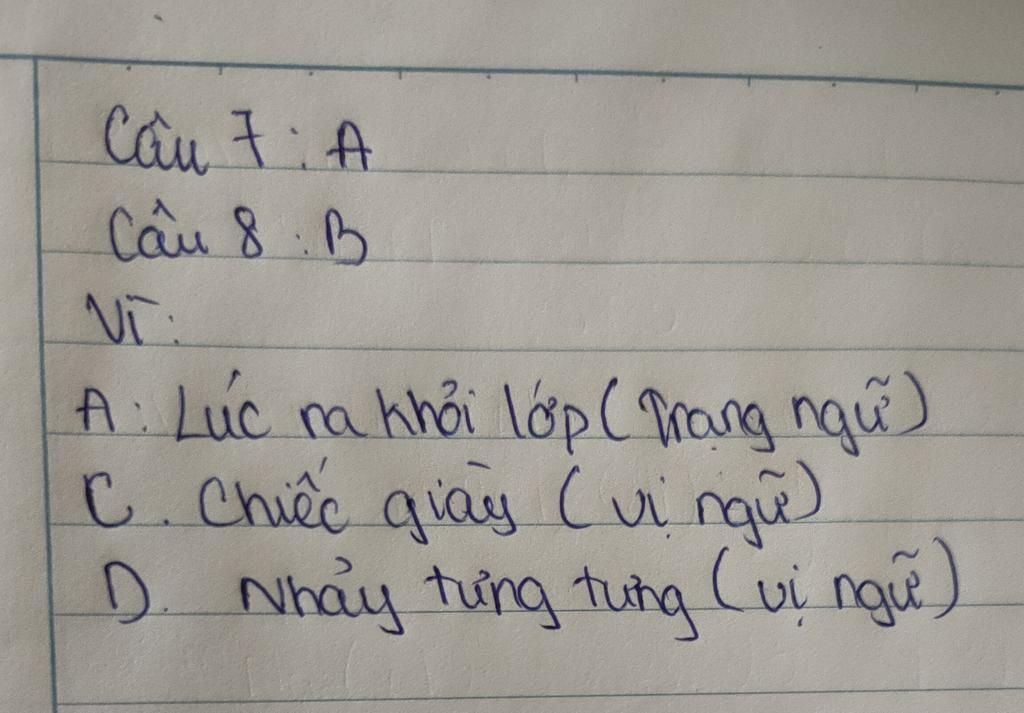 Câu 7 : A
Câu 8 : B
Vì :
A : Lúc ra khỏi lớp ( Trạng ngữ )
C . Chiếc giày ( vị ngữ )
D. Nhảy tưng tưng ( vị ngữ )